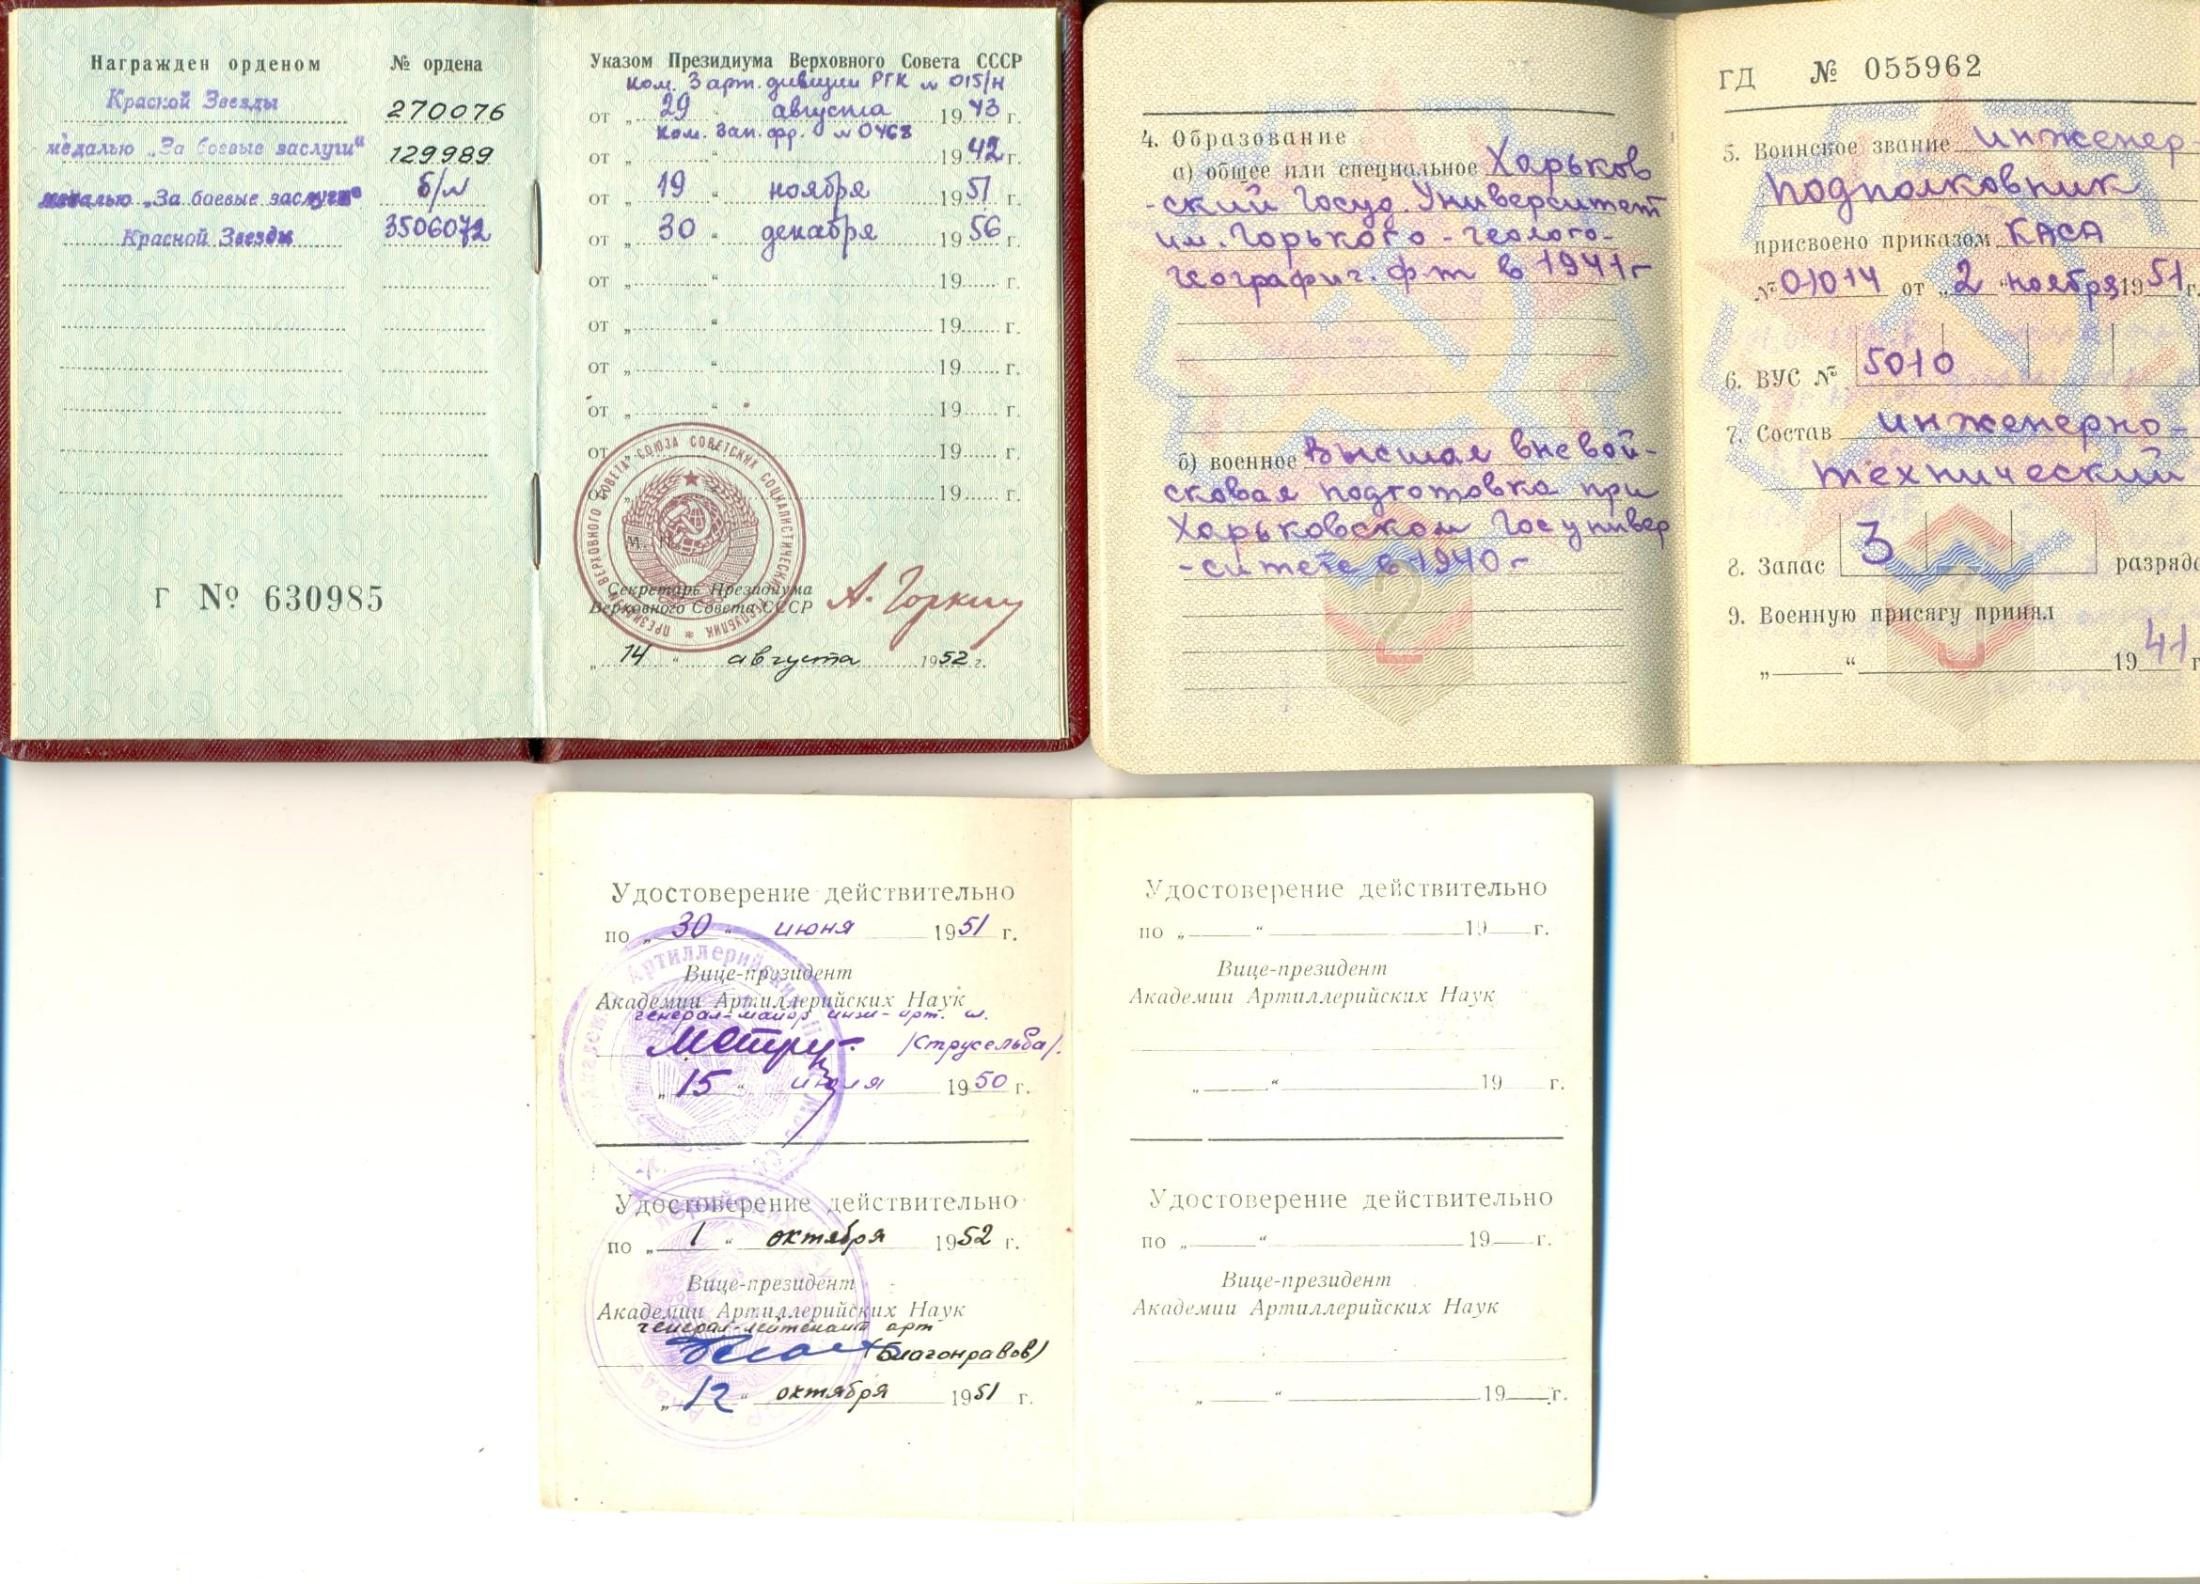 Награжден орденом № ордена
Красной Звезды 270076
медалью „За боевые заслуги“ 129989
медалью „За боевые заслуги“ б/№
Красной Звезды 3506072
Г № 630985
Указом Президиума Верховного Совета СССР
Ком. 3 арт. дивизии РГК № 015/н
от „ 29 “ августа 1943 г.
Ком. Зап. фр. № 0468
от „ “ 1942 г.
от „ 19 “ ноября 1951 г.
от „ 30 “ декабря 1956 г.
от „ “ 19 г.
от „ “ 19 г.
от „ “ 19 г.
от „ “ 19 г.
от „ “ 19 г.
от „ “ 19 г.
М. П.
Секретарь Президиума
Верховного Совета СССР А. Горкин
„ 14 “ августа 1952 г.
4. Образование
а) общее или специальное Харьков
-ский Госуд. Университет
им. Горького - геолого-
географич. ф-т в 1941 г
б) военное Высшая вневой-
сковая подготовка при
Харьковском Госунивер
-ситете в 1940 г
ГД № 055962
5. Воинское звание инженер-
подполковник
присвоено приказом КАСА
№ 01014 от „ 2 “ ноября 1951 г.
6. ВУС № 5010
7. Состав инженерно-
технический
8. Запас 3 разряда
9. Военную присягу принял
„ “ 1941 г
Удостоверение действительно
по „ 30 “ июня 1951 г.
Вице-президент
Академии Артиллерийских Наук
генерал-майор инж-арт. сл.
/Струсельба/.
„ 15 “ июля 1950 г.
Удостоверение действительно
по „ 1 “ октября 1952 г.
Вице-президент
Академии Артиллерийских Наук
генерал-лейтенант арт
(Благонравов)
„ 12 “ октября 1951 г.
Удостоверение действительно
по „ “ 19 г.
Вице-президент
Академии Артиллерийских Наук
„ “ 19 г.
Удостоверение действительно
по „ “ 19 г.
Вице-президент
Академии Артиллерийских Наук
„ “ 19 г.